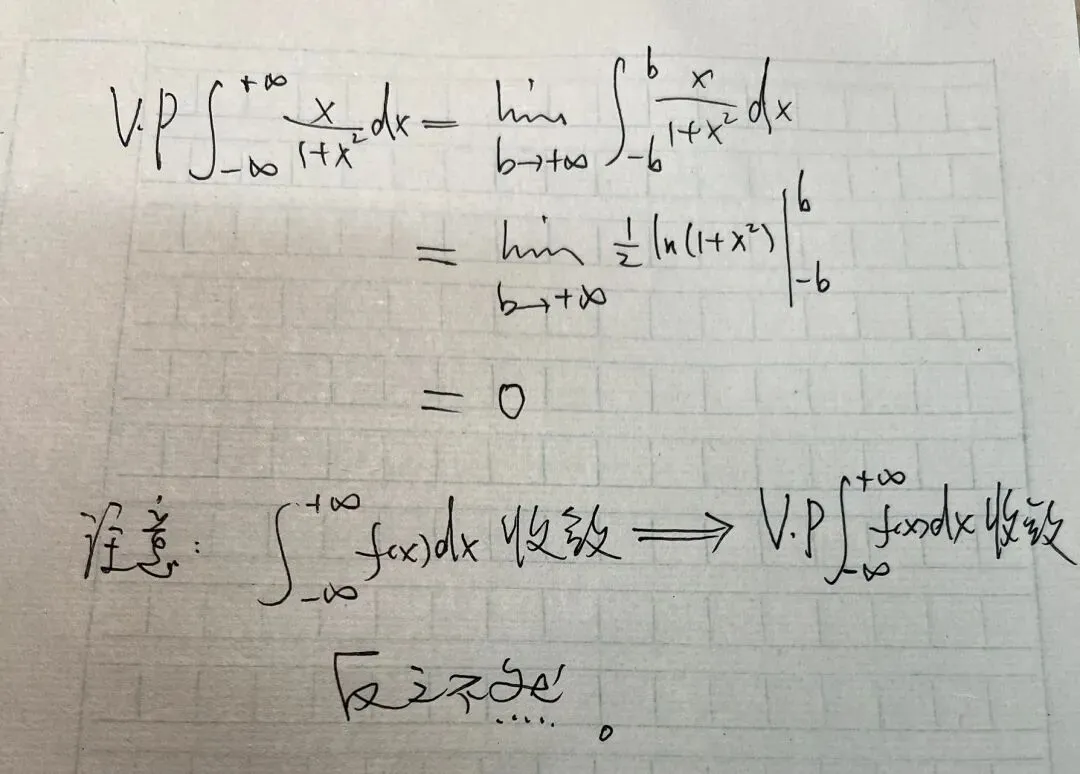 V.P∫_{-∞}^{+∞} x/(1+x²) dx = lim_{b→+∞} ∫_{-b}^{b} x/(1+x²) dx
= lim_{b→+∞} 1/2 ln(1+x²)|_{-b}^{b}
= 0
注意: ∫_{-∞}^{+∞} f(x)dx 收敛 ⟹ V.P∫_{-∞}^{+∞} f(x)dx 收敛
反之不一定。